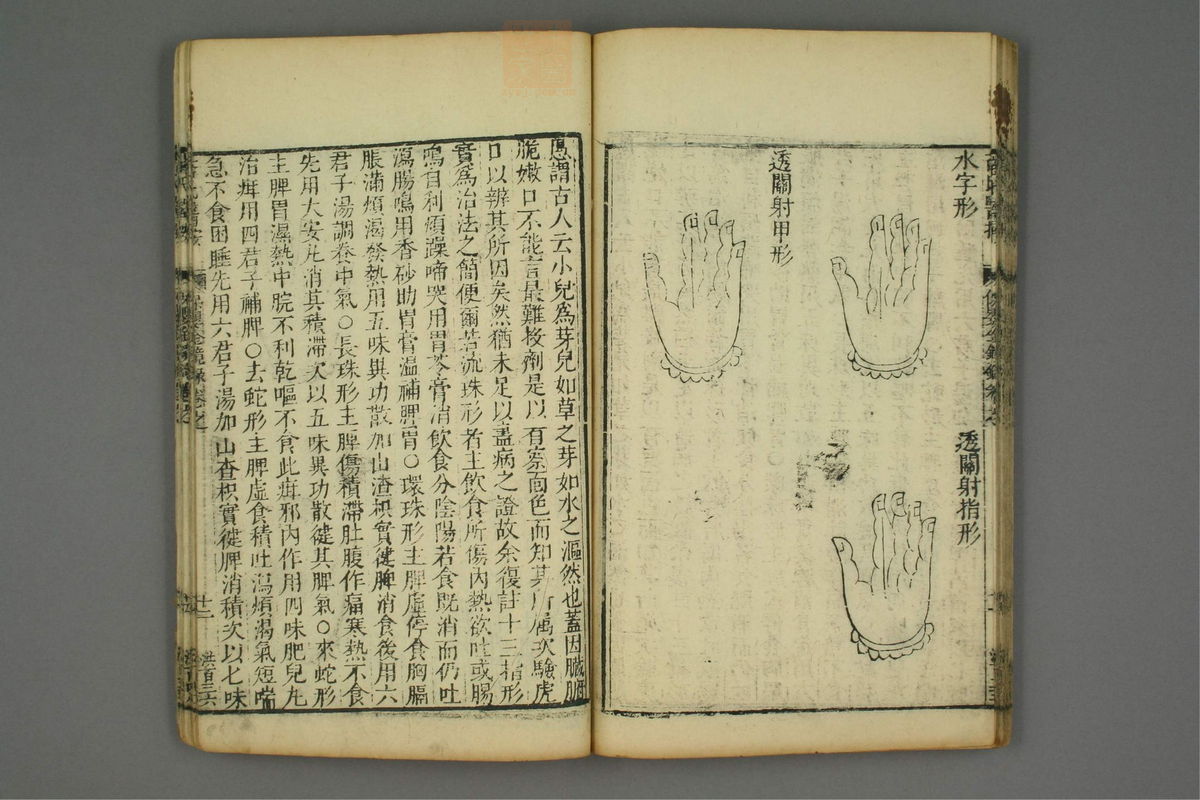 水字形
透關射指形
透關射甲形
愚謂古人云小兒爲芽兒如草之芽如水之漚然也蓋因臟腑
脆嫩口不能言最難投劑是以有察面色而知其所屬次驗虎
口以辨其所因矣然猶未足以盡病之證故余復註十三指形
實爲治法之簡便爾若流珠形者主飲食所傷内熱欲吐或腸
鳴自利煩躁啼哭用胃苓膏消飲食分陰陽若食既消而仍吐
瀉腸鳴用香砂助胃膏温補脾胃○環珠形主脾虚停食胸膈
脹滿煩渴發熱用五味異功散加山查枳實健脾消食後用六
君子湯調養中氣○長珠形主脾傷積滯肚腹作痛寒熱不食
先用大安丸消其積滯次以五味異功散健其脾氣○來蛇形
主脾胃濕熱中脘不利乾嘔不食此疳邪内作用四味肥兒丸
治疳用四君子補脾○去蛇形主脾虚食積吐瀉煩渴氣短喘
急不食困睡先用六君子湯加山查枳實健脾消積次以七味
保嬰金鏡錄